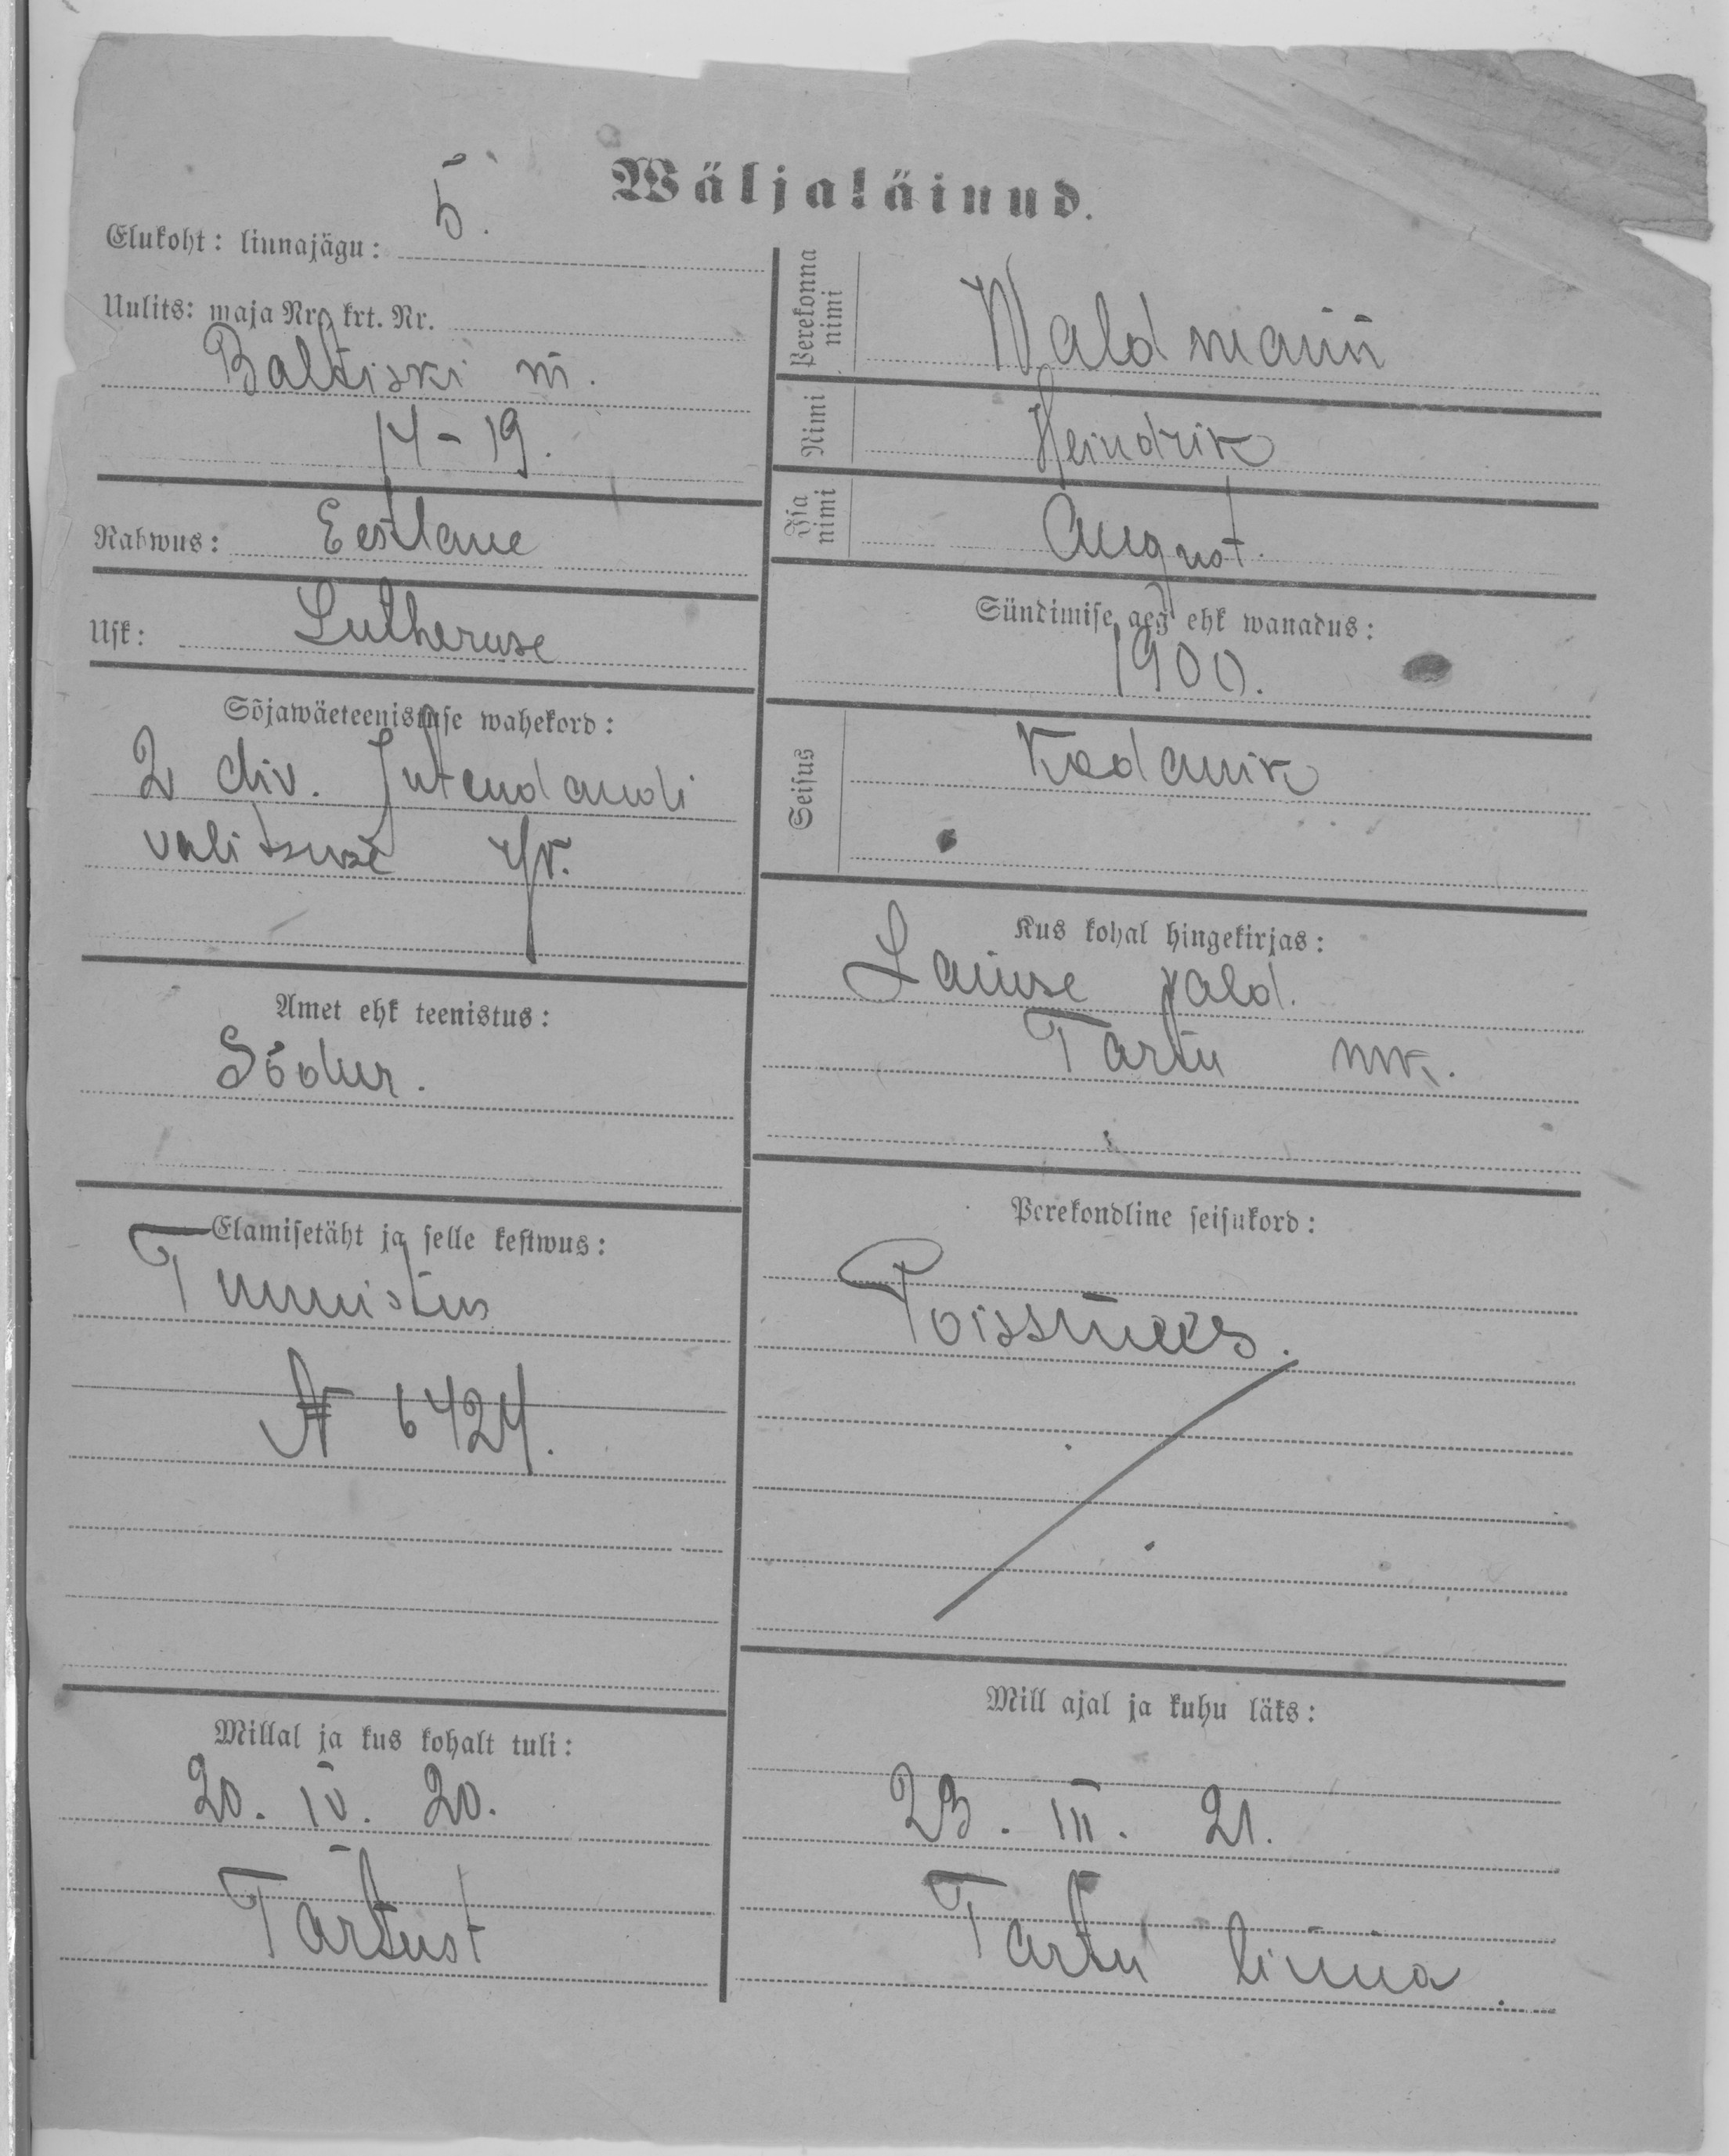 Wäljaläinud.
Elukoht: linnajägu: 5.
Uulits: maja Nr. krt. Nr.
Baltiski m.
14-19.
Rahwus: Eestlane
Usk: Lutheruse
Sõjawäeteenistuse wahekord:
2 div. Intendandi
valitsuse
Amet ehk teenistus:
Sõdur.
Elamisetäht ja selle kestwus:
Tunnistus
№ 6424.
Millal ja kus kohalt tuli:
20. IV. 20.
Tartust
Perekonna nimi Waldmann
Nimi Heindrik
Isa nimi August.
Sündimise aeg ehk wanadus:
1900.
Seisus Kodanik
Kus kohal hingekirjas:
Laiuse vald.
Tartu mk.
Perekondline seisukord:
Poissmees.
Mill ajal ja kuhu läks:
23. III. 21.
Tartu linna.